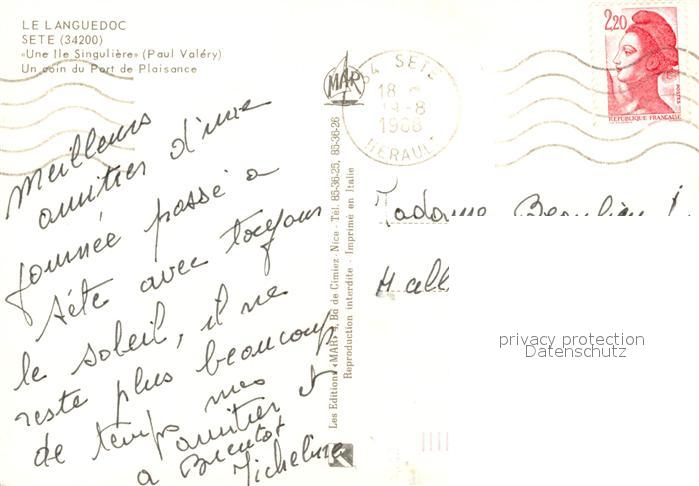 LE LANGUEDOC
SETE (34200)
«Une Ile Singulière» (Paul Valéry)
Un coin du Port de Plaisance
MAR
34 SETE
18
19-8
1986
HERAULT
2,20
POSTES
REPUBLIQUE FRANÇAISE
meilleurs
amitier d'une
journée passé a
Séte avec toujours
le soleil, il ne
reste plus beaucoup
de temps mes
amitier et
a Bientot
Micheline
Les Editions «MAR» 4, Bd de Cimiez - Nice - Tél. 85-36-25, 85-36-26
Reproduction interdite - Imprimé en Italie
Madame Beaulieu
privacy protection
Datenschutz